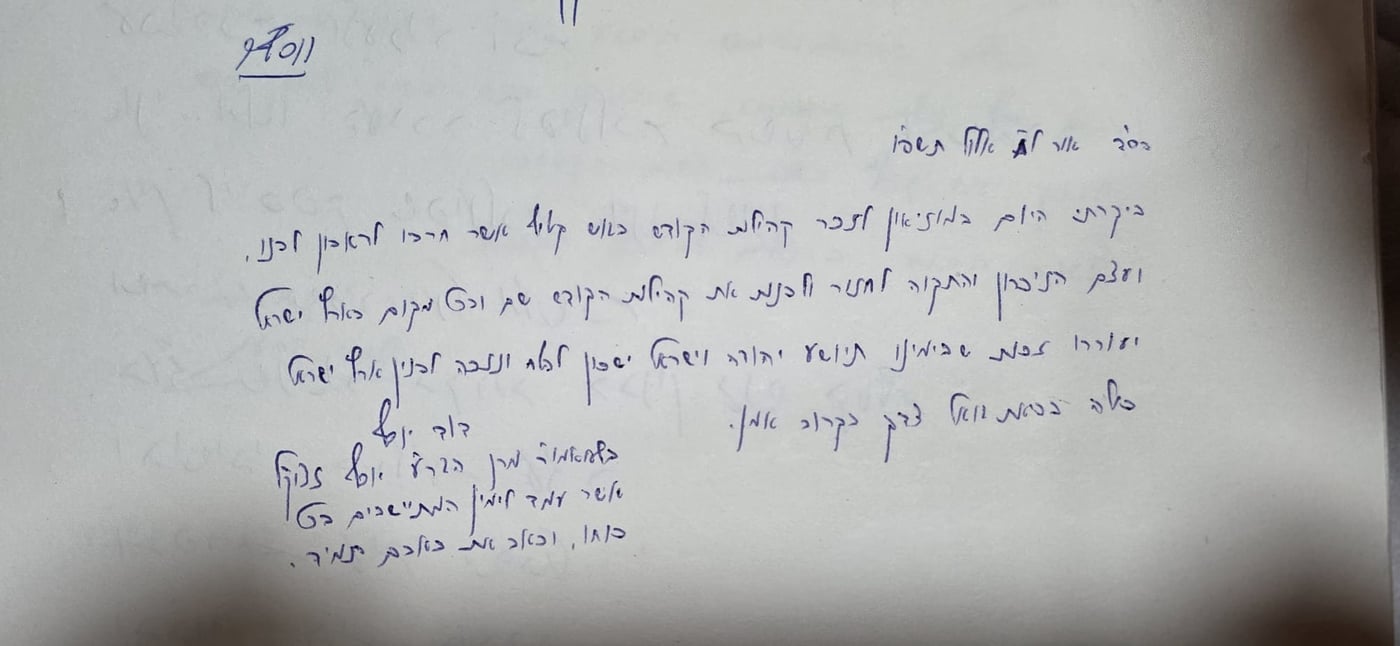 בס"ד אור לח' אלול תשפ"ו
ביקרתי היום במוזיאון לזכר קהילות הקודש בגוש קטיף אשר חרבו לדאבון לבנו,
ועצם הזיכרון והתקוה לחזור ולבנות את קהילות הקודש שם ובכל מקום בארץ ישראל
יעוררו זכות שבימינו תיושע יהודה וישראל ישכון לבטח ונזכה לבנין ארץ ישראל
כולה בביאת גואל צדק בקרוב אמן.
דוד יוסף
מרן הגר"ע יוסף זצוק"ל
אשר עמד לימין המתיישבים בכל
כוחו, וכאב את כאבם תמיד.